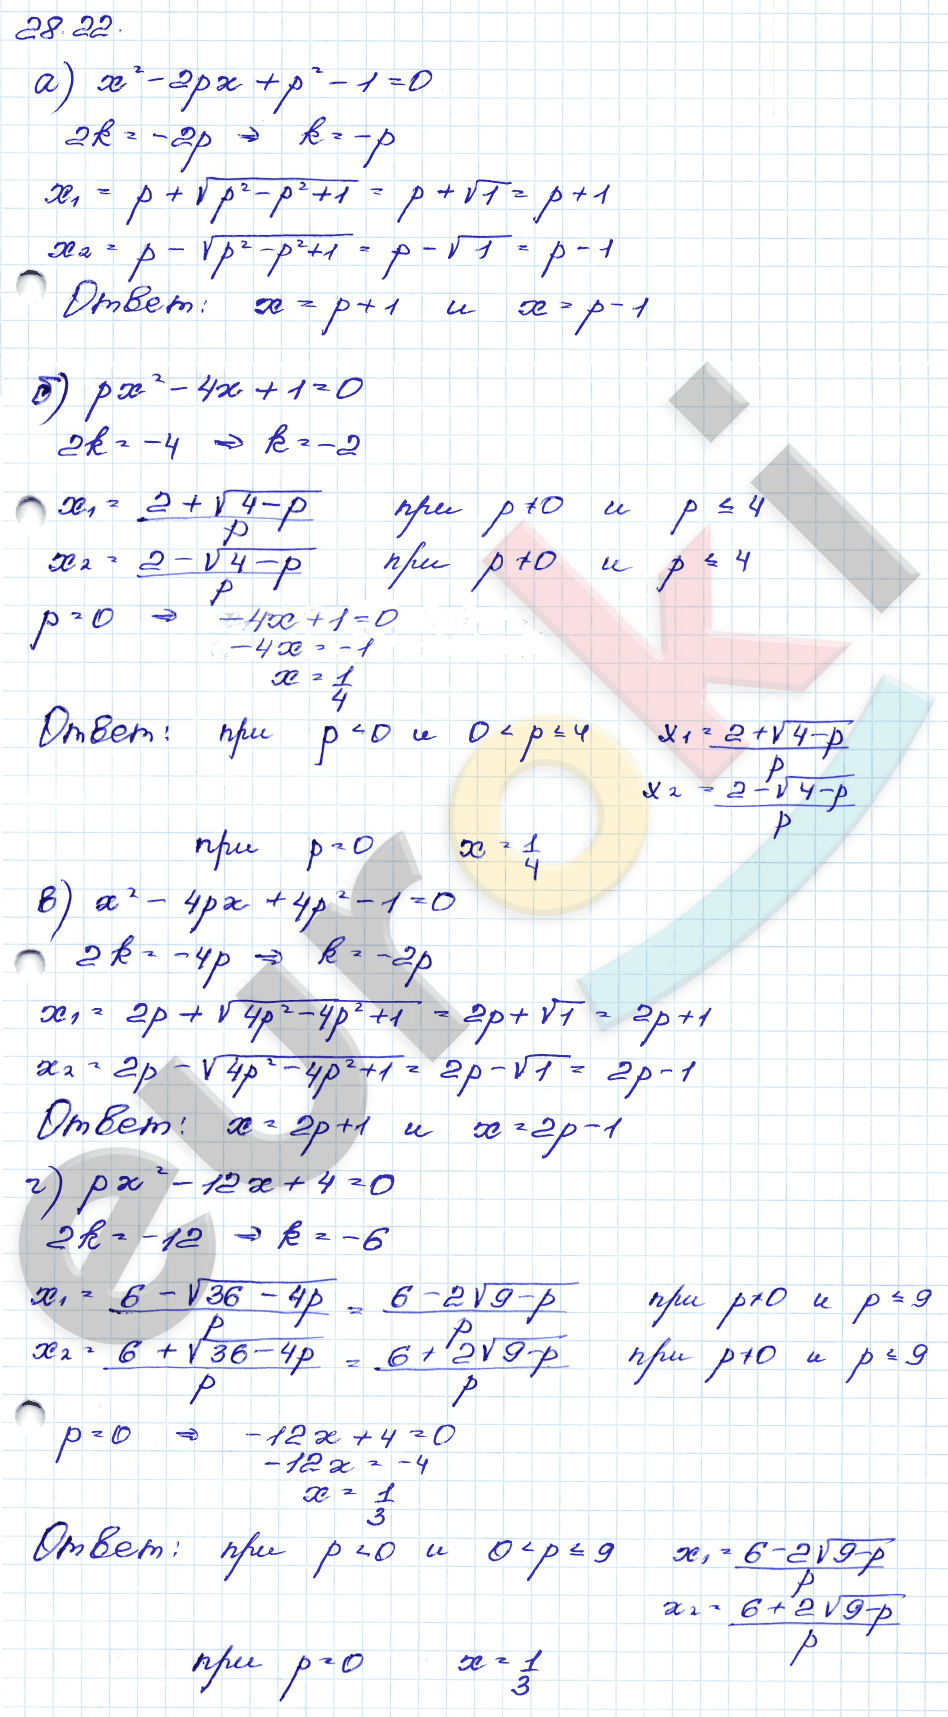 28.22.
а) x² - 2px + p² - 1 = 0
2k = -2p ⇒ k = -p
x₁ = p + √(p² - p² + 1) = p + √1 = p + 1
x₂ = p - √(p² - p² + 1) = p - √1 = p - 1
Ответ: x = p + 1 и x = p - 1
б) px² - 4x + 1 = 0
2k = -4 ⇒ k = -2
x₁ = (2 + √(4 - p))/p при p ≠ 0 и p ≤ 4
x₂ = (2 - √(4 - p))/p при p ≠ 0 и p ≤ 4
p = 0 ⇒ -4x + 1 = 0
-4x = -1
x = 1/4
Ответ: при p < 0 и 0 < p ≤ 4 x₁ = (2 + √(4 - p))/p
x₂ = (2 - √(4 - p))/p
при p = 0 x = 1/4
в) x² - 4px + 4p² - 1 = 0
2k = -4p ⇒ k = -2p
x₁ = 2p + √(4p² - 4p² + 1) = 2p + √1 = 2p + 1
x₂ = 2p - √(4p² - 4p² + 1) = 2p - √1 = 2p - 1
Ответ: x = 2p + 1 и x = 2p - 1
г) px² - 12x + 4 = 0
2k = -12 ⇒ k = -6
x₁ = (6 - √(36 - 4p))/p = (6 - 2√(9 - p))/p при p ≠ 0 и p ≤ 9
x₂ = (6 + √(36 - 4p))/p = (6 + 2√(9 - p))/p при p ≠ 0 и p ≤ 9
p = 0 ⇒ -12x + 4 = 0
-12x = -4
x = 1/3
Ответ: при p < 0 и 0 < p ≤ 9 x₁ = (6 - 2√(9 - p))/p
x₂ = (6 + 2√(9 - p))/p
при p = 0 x = 1/3
euroki